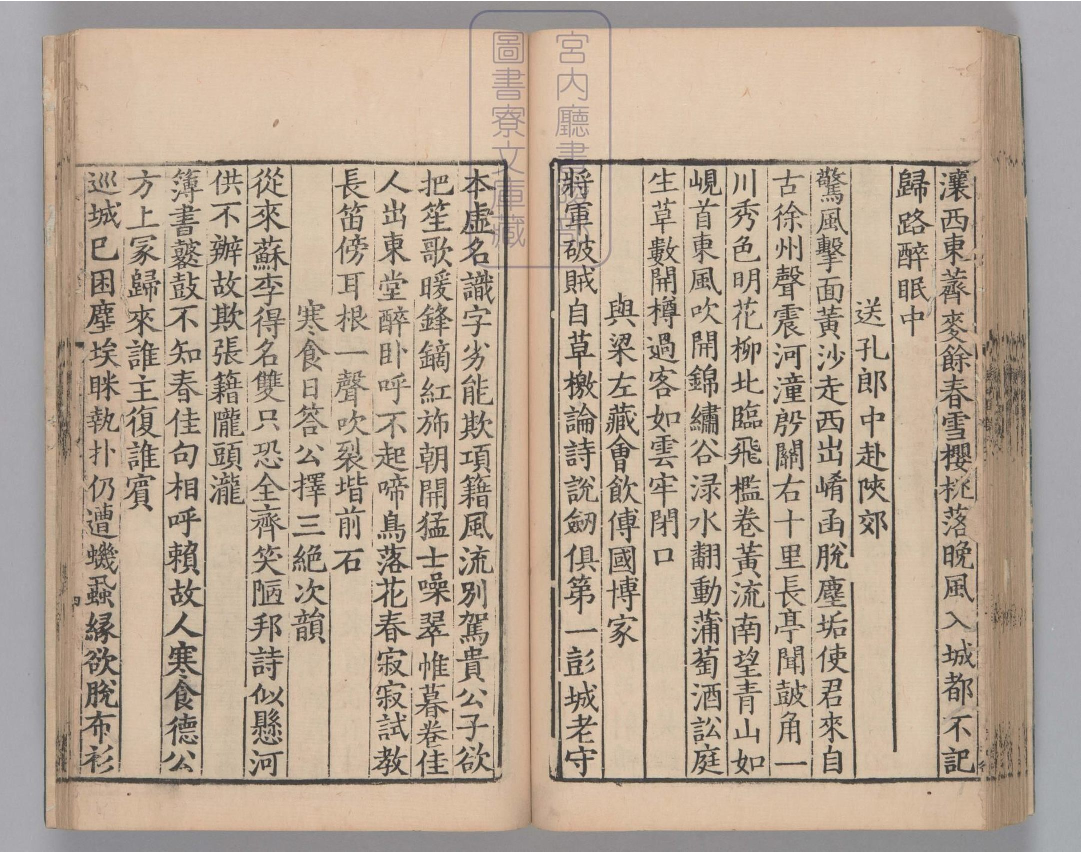 瀼西東薺麥餘春雪櫻桃落晚風入城都不記
歸路醉眠中
送孔郎中赴陝郊
驚風擊面黃沙走西出崤函脫塵垢使君來自
古徐州聲震河潼殷關右十里長亭聞皷角一
川秀色明花柳北臨飛檻卷黃流南望青山如
峴首東風吹開錦繡谷渌水翻動蒲萄酒訟庭
生草數開樽過客如雲牢閉口
與梁左藏會飲傅國博家
將軍破賊自草檄論詩說劒俱第一彭城老守
本虛名識字劣能欺項籍風流別駕貴公子欲
把笙歌暖鋒鏑紅斾朝開猛士噪翠帷暮卷佳
人出東堂醉卧呼不起啼鳥落花春寂寂試教
長笛傍耳根一聲吹裂堦前石
寒食日答公擇三絕次韻
從來蘇李得名雙只恐全齊笑陋邦詩似懸河
供不辦故欺張籍隴頭瀧
簿書鼛鼓不知春佳句相呼賴故人寒食德公
方上冢歸來誰主復誰賓
巡城已困塵埃眯執扑仍遭蟣蝨緣欲脫布衫
宮內廳書陵部
圖書寮文庫藏